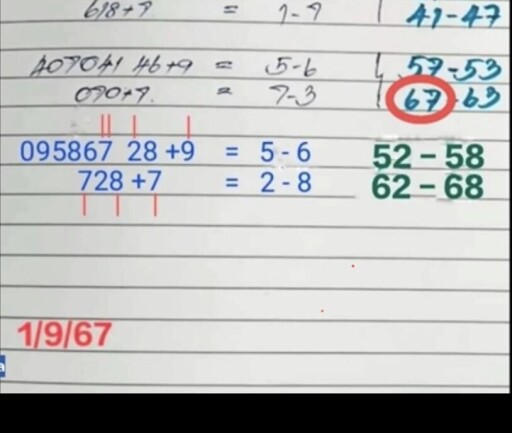 618+7 = 1-7 41-47
407041 46+9 = 5-6 57-53
070+7 = 7-3 67-63
095867 28 +9 = 5 - 6 52 - 58
728 +7 = 2 - 8 62 - 68
1/9/67